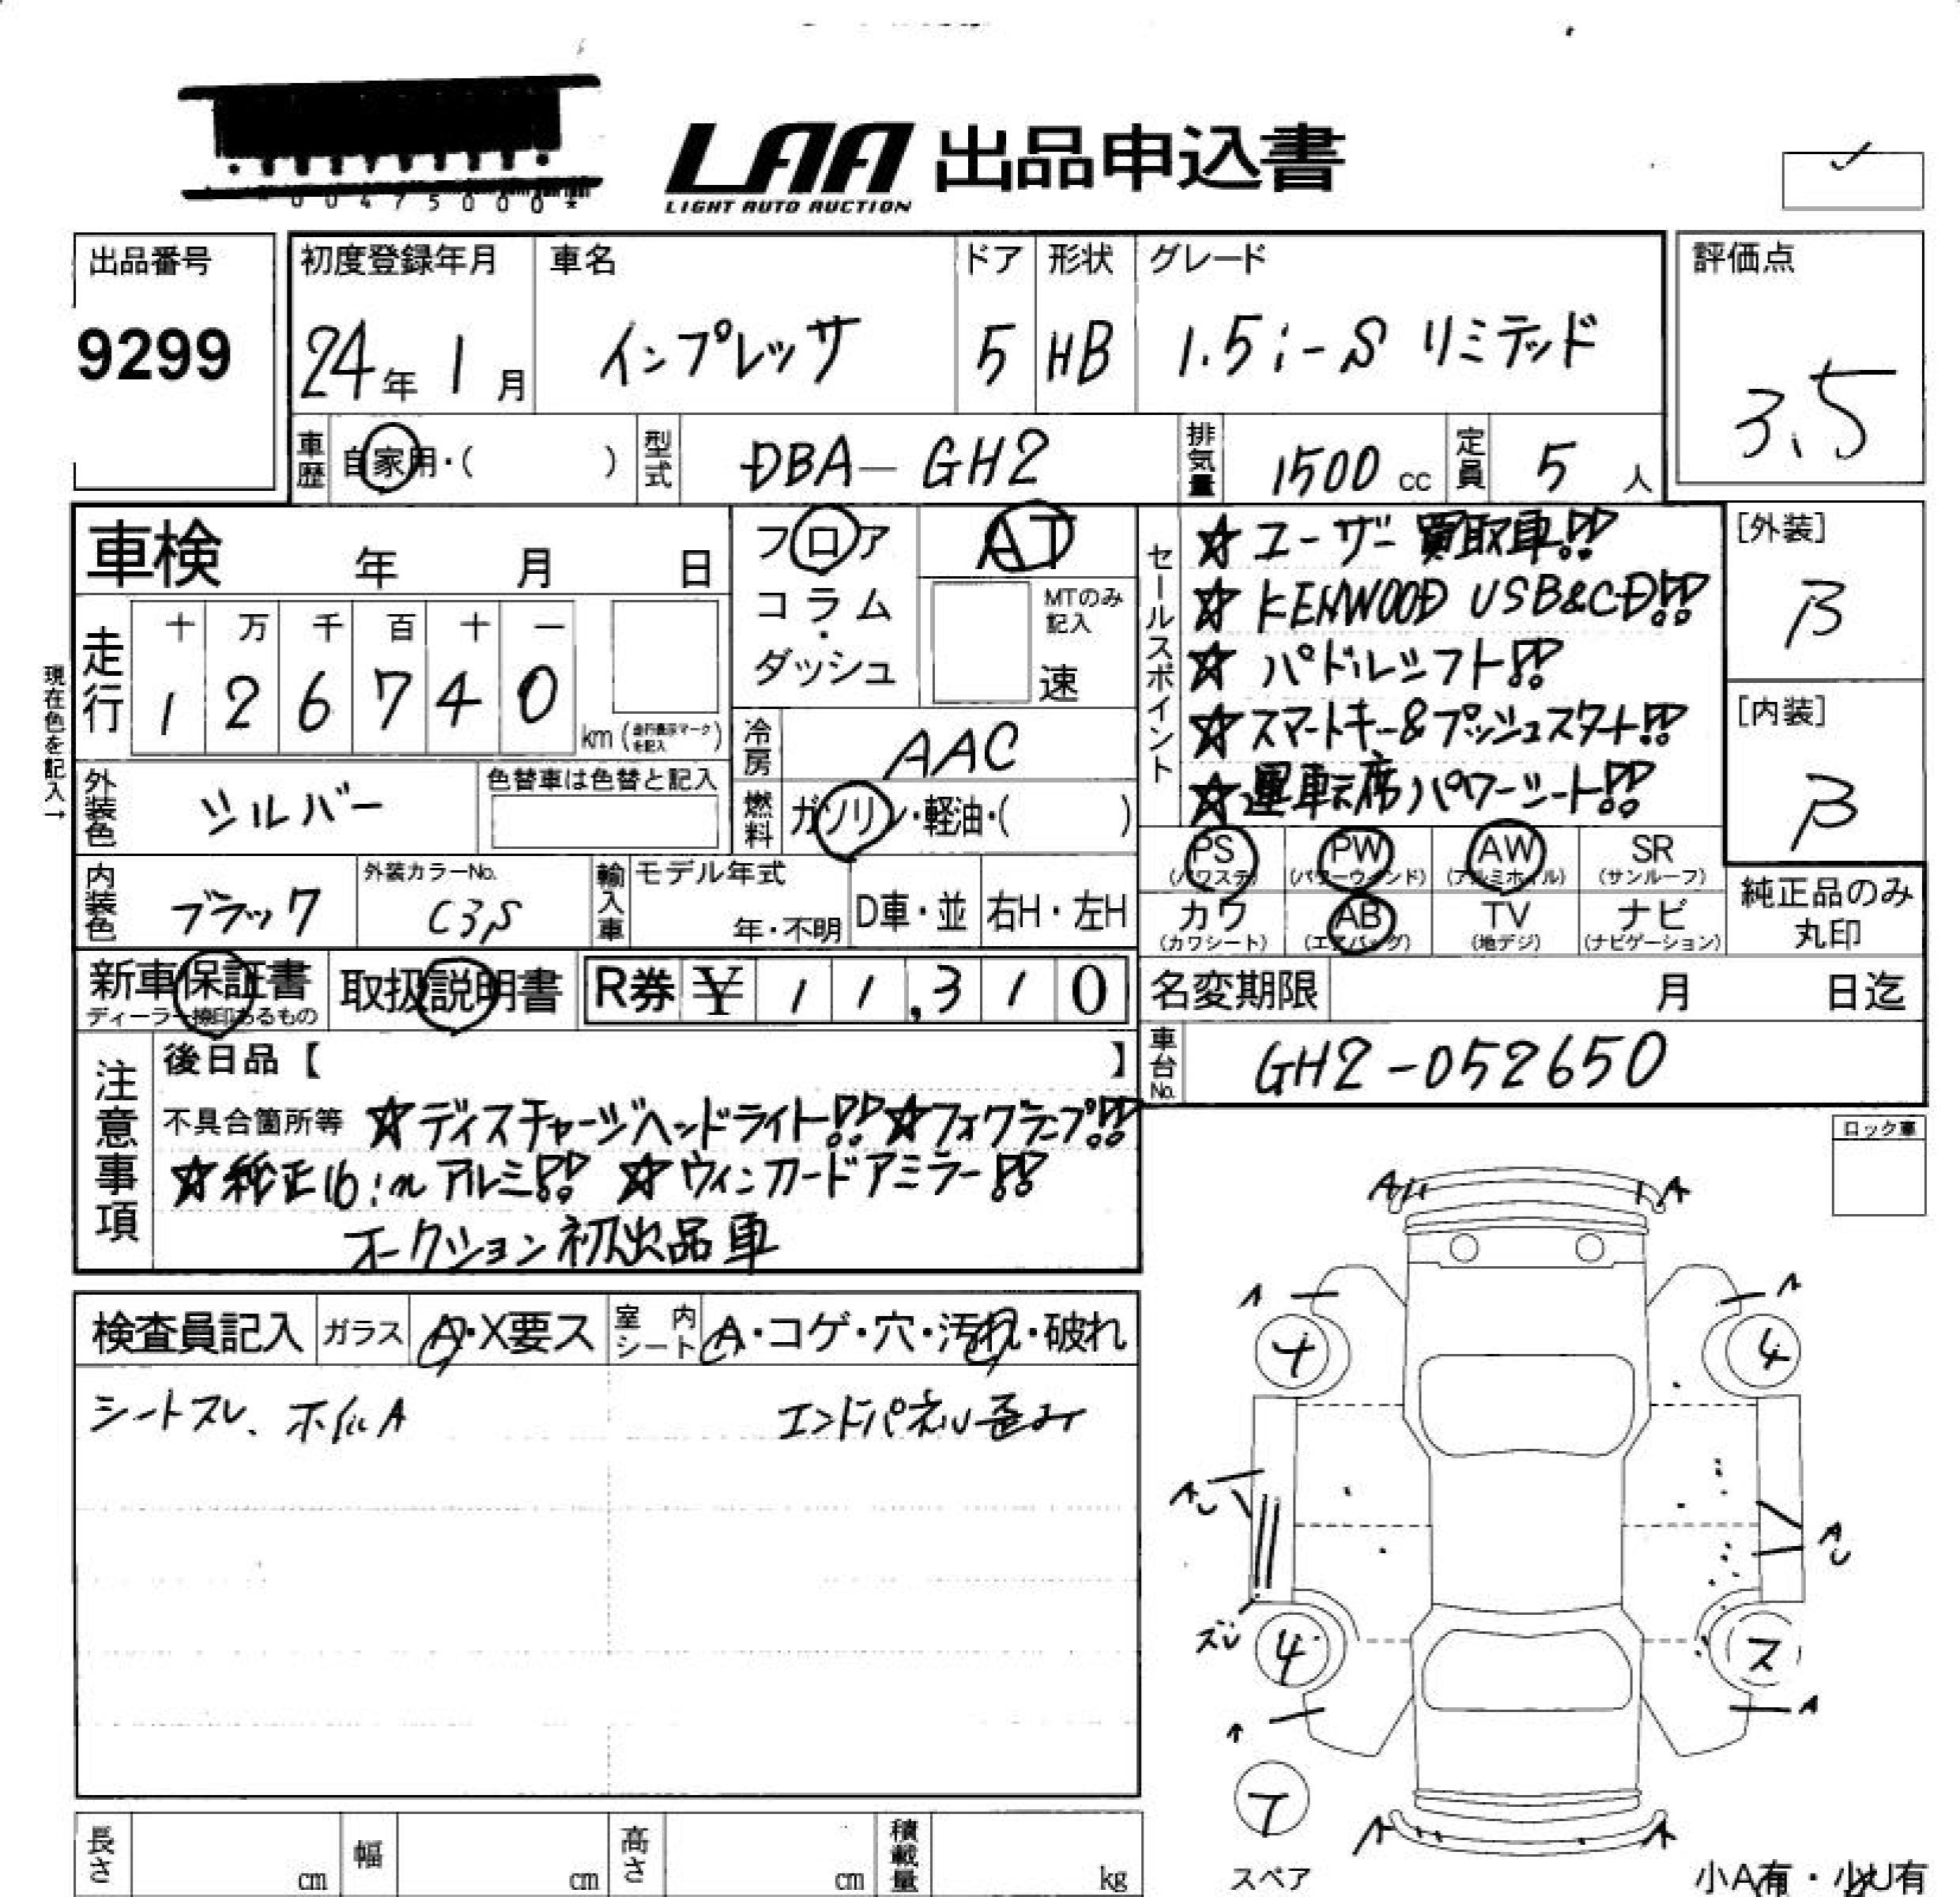 00475000*
LAA 出品申込書
LIGHT AUTO AUCTION
出品番号
9299
初度登録年月
24年 1月
車名
インプレッサ
ドア
5
形状
HB
グレード
1.5i-S リミテッド
評価点
3.5
車歴 自家用・( )
型式 DBA-GH2
排気量 1500 cc
定員 5 人
車検 年 月 日
フロア
コラム
・
ダッシュ
AT
MTのみ
記入
速
現在色を記入→
走行
十 万 千 百 十 一
1 2 6 7 4 0
km (走行表示マークを記入)
冷房 AAC
燃料 ガソリン・軽油・( )
外装色 シルバー
色替車は色替と記入
内装色 ブラック
外装カラーNo.
C3S
輸入車
モデル年式
年・不明
D車・並
右H・左H
セールスポイント
☆ユーザー買取車!!
☆KENWOOD USB&CD!!
☆パドルシフト!!
☆スマートキー&プッシュスタート!!
☆運転席パワーシート!!
[外装]
B
[内装]
B
PS (パワステ)
PW (パワーウィンド)
AW (アルミホイル)
SR (サンルーフ)
カワ (カワシート)
AB (エアバッグ)
TV (地デジ)
ナビ (ナビゲーション)
純正品のみ
丸印
新車保証書
ディーラー捺印あるもの
取扱説明書
R券 ¥ 11,310
名変期限 月 日迄
車台No. GH2-052650
注意事項
後日品【 】
不具合箇所等 ☆ディスチャージヘッドライト!!☆フォグランプ!!
☆純正16inアルミ!! ☆ウィンカードアミラー!!
オークション初出品車
ロック車
検査員記入
ガラス A・X要ス
室内シート A・コゲ・穴・汚れ・破れ
シートスレ、ホイルA
エンドパネル歪み
A
A
A
A
4
4
AU
AU
ズレ
4
ス
A
A
T
スペア
A
A
長さ cm
幅 cm
高さ cm
積載量 kg
小A有・小U有